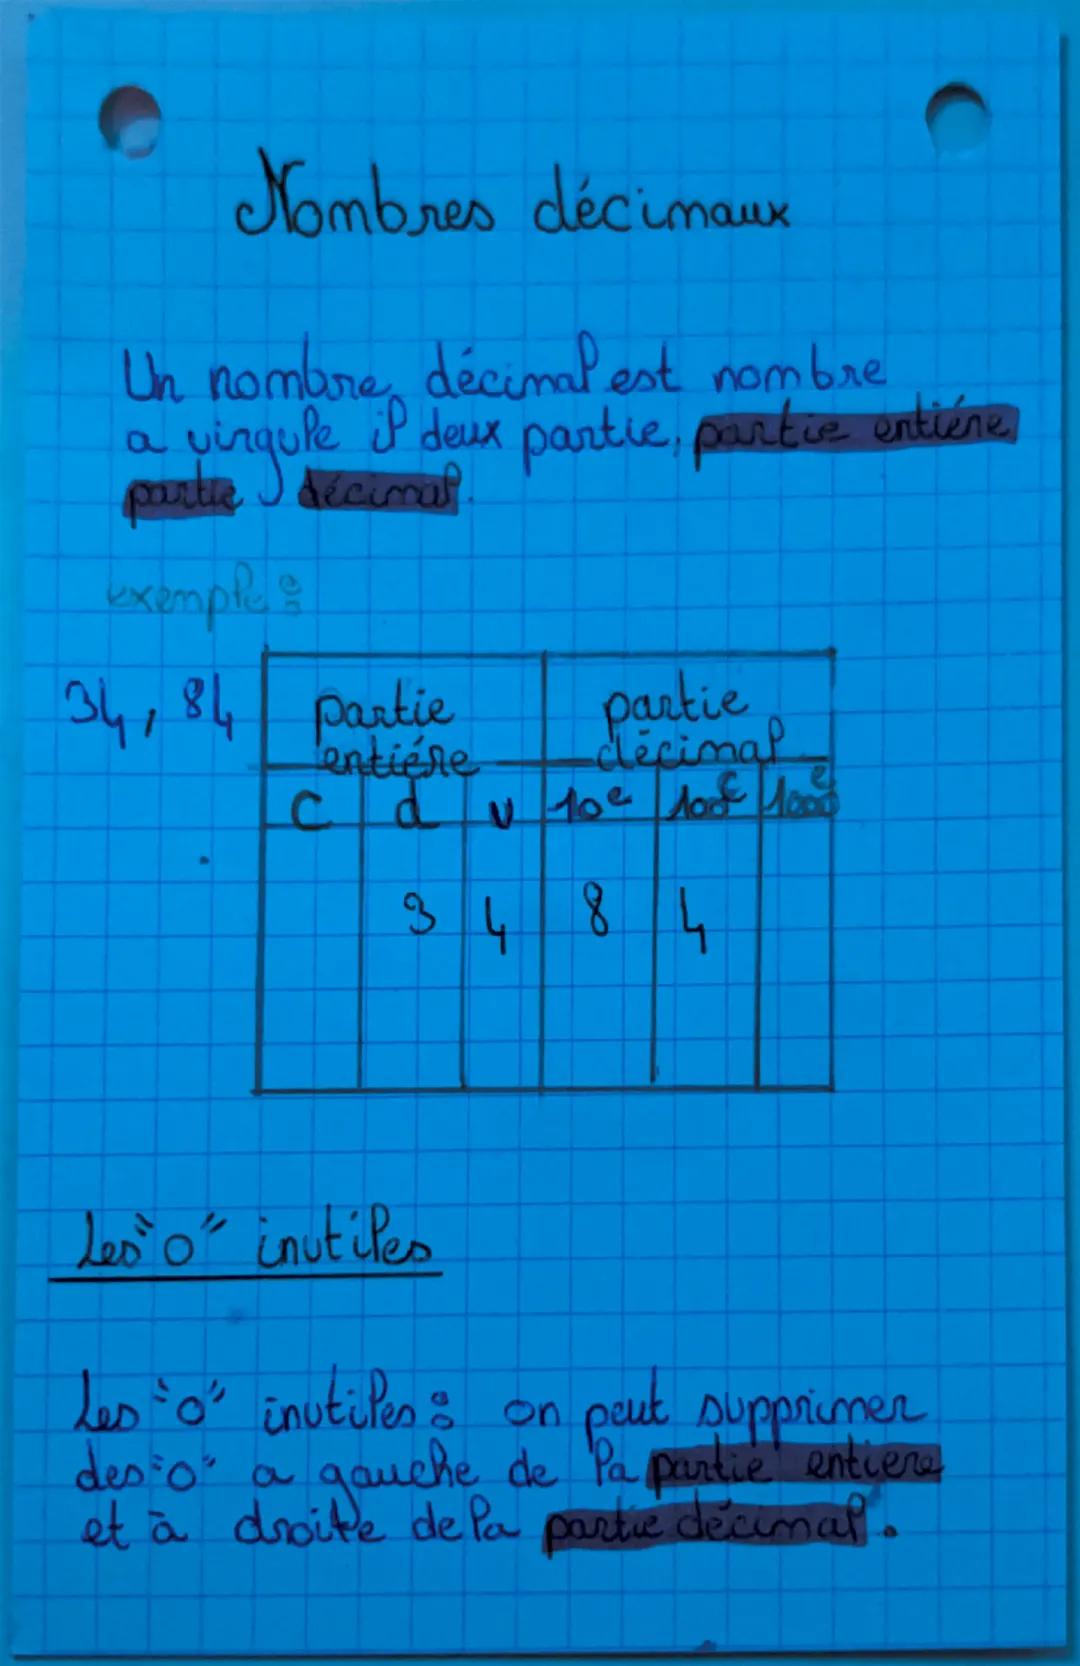 Nombres décimaux
Un nombre, décimal est nombre
a virgule il deux partie, partie entiére,
partie décimal.
exemple :
34,84
partie entiére
partie décimal
C d u 10e 100e 1000e
3 4 8 4
Les "0" inutiles
Les "0" inutiles : on peut supprimer
des "0" a gauche de la partie entiere
et à droite de la partie décimal.